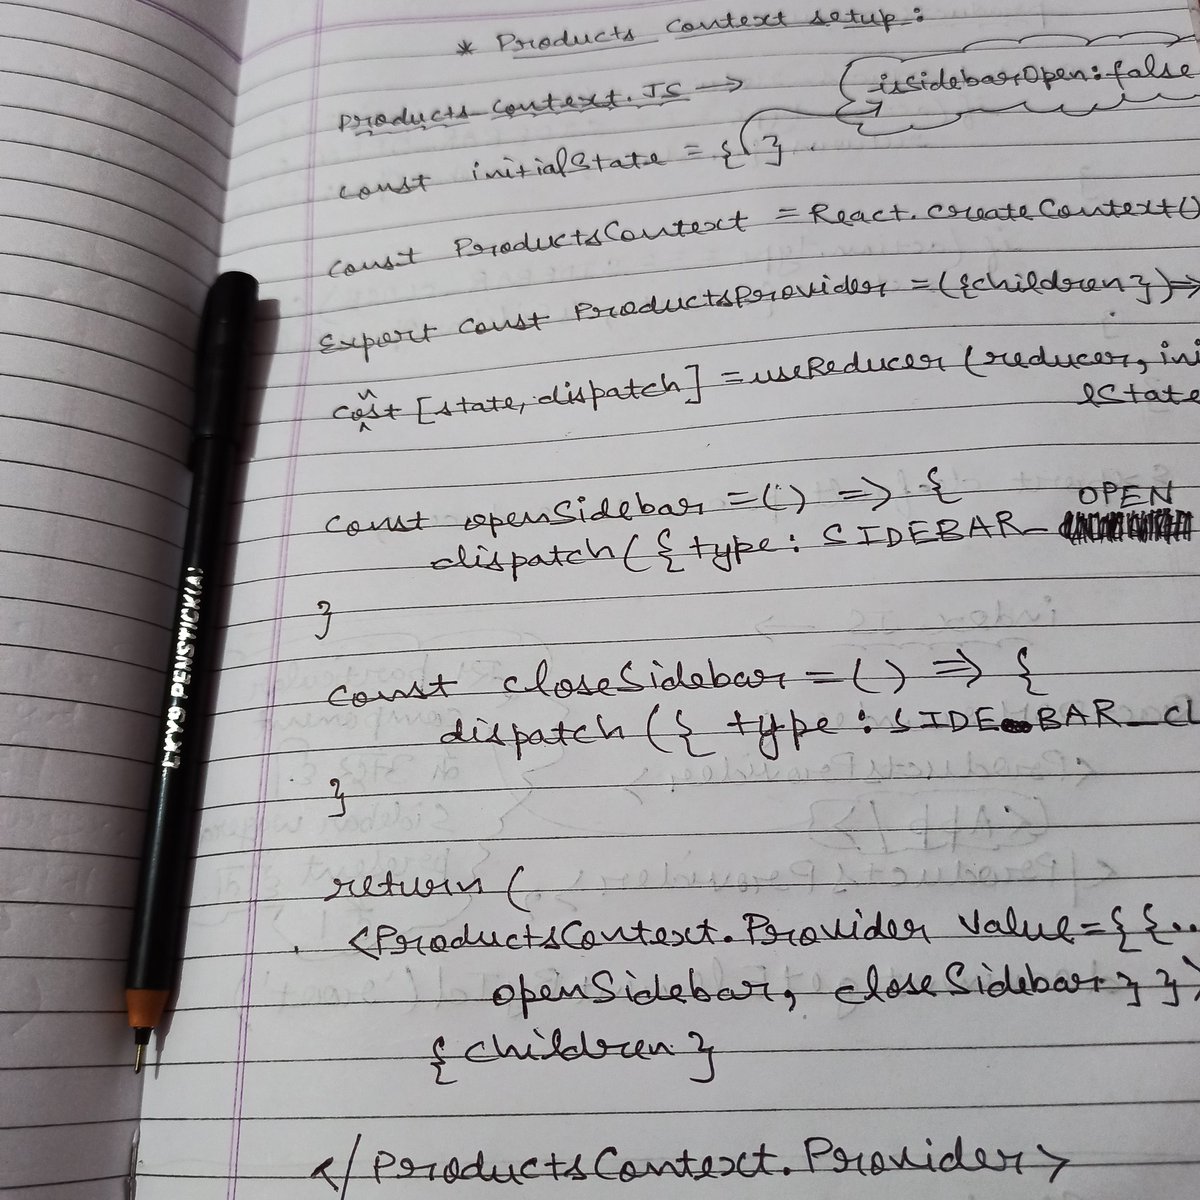 * Products Context setup:
Products_Context.JS →
isSidebarOpen:false
const initialState = { }
const ProductsContext = React.createContext()
Export const ProductsProvider = ({children}) =>
const [state, dispatch] = useReducer (reducer, ini
lState
const openSidebar = () => {
dispatch ({ type: SIDEBAR_OPEN
}
const closeSidebar = () => {
dispatch ({ type : SIDEBAR_Cl
}
return (
<ProductsContext.Provider value={{..
openSidebar, closeSidebar}}>
{children}
</ProductsContext.Provider>
LKY9 PENSTICK(A)